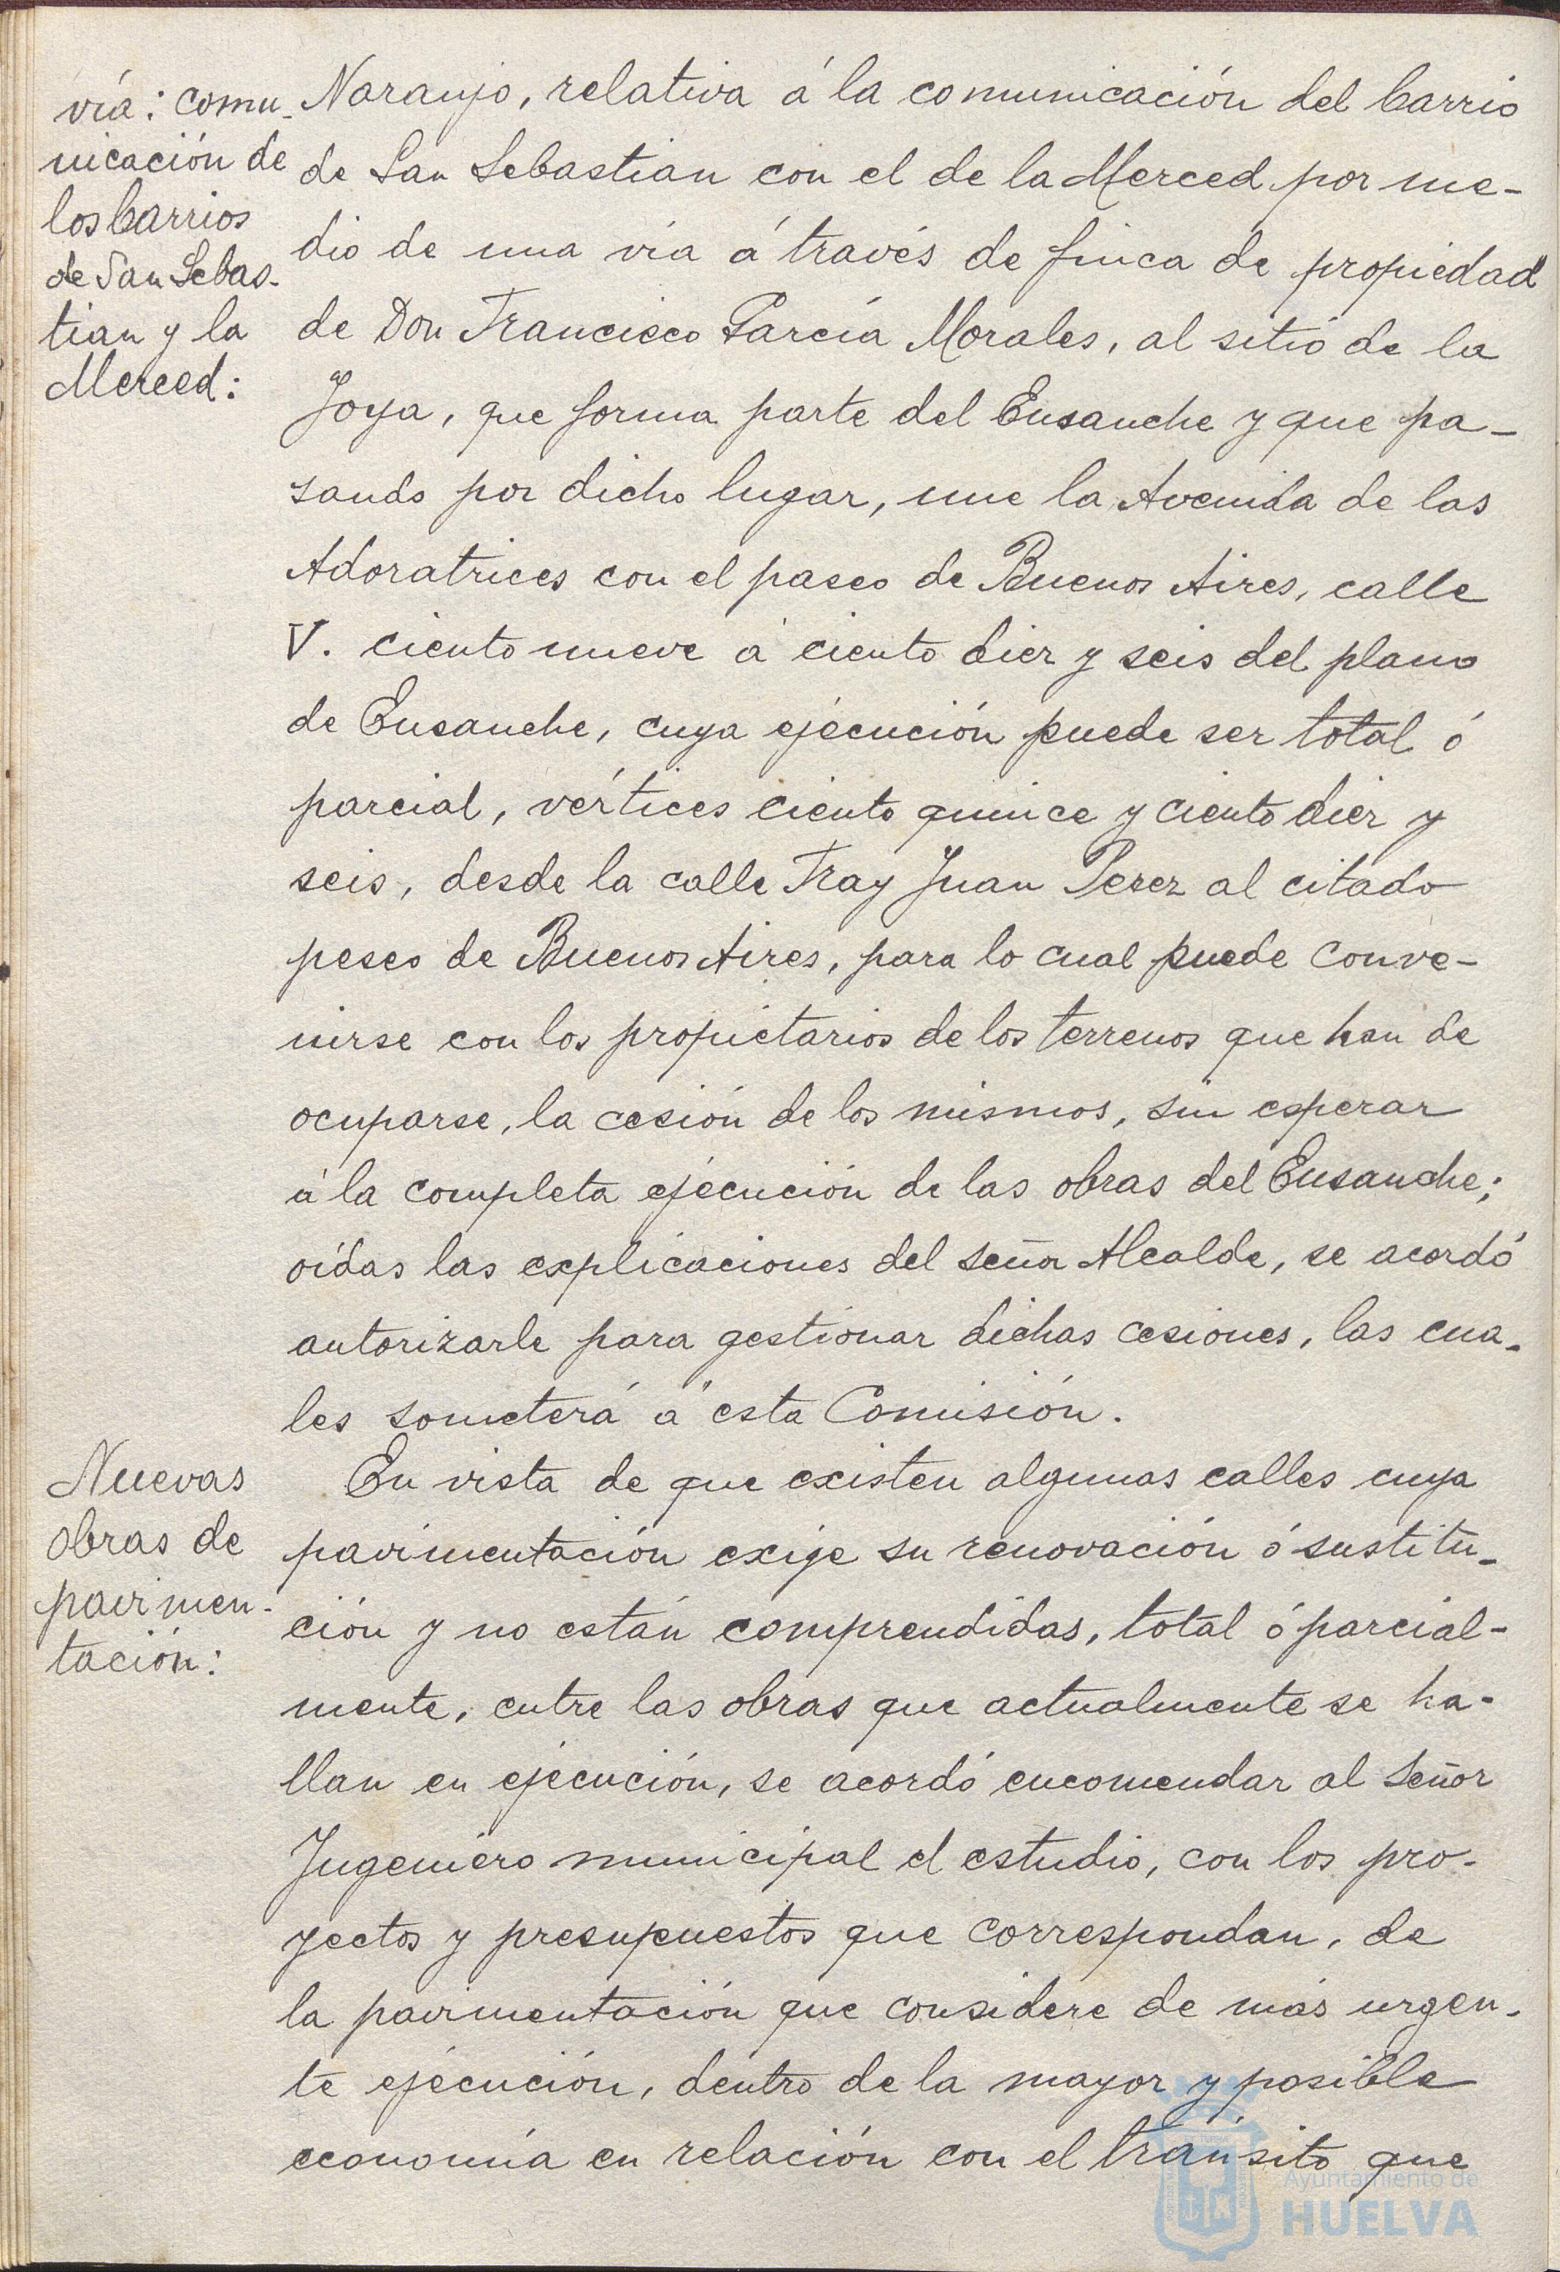 vía: comu-
nicación de
los barrios
de San Sebas-
tian y la
Merced:
Naranjo, relativa á la comunicación del barrio
de San Sebastian con el de la Merced por me-
dio de una vía á través de finca de propiedad
de Don Francisco García Morales, al sitio de la
Joya, que forma parte del Ensanche y que pa-
sando por dicho lugar, une la Avenida de las
Adoratrices con el paseo de Buenos Aires, calle
V. ciento nueve á ciento diez y seis del plano
de Ensanche, cuya ejecución puede ser total ó
parcial, vértices ciento quince y ciento diez y
seis, desde la calle Fray Juan Perez al citado
peseo de Buenos Aires, para lo cual puede conve-
nirse con los propietarios de los terrenos que han de
ocuparse, la cesión de los mismos, sin esperar
á la completa ejecución de las obras del Ensanche;
oídas las explicaciones del señor Alcalde, se acordó
autorizarle para gestionar dichas cesiones, las cua-
les someterá á esta Comisión.
Nuevas
obras de
pavimen-
tación:
En vista de que existen algunas calles cuya
pavimentación exige su renovación ó sustitu-
ción y no están comprendidas, total ó parcial-
mente, entre las obras que actualmente se ha-
llan en ejecución, se acordó encomendar al señor
Ingeniero municipal el estudio, con los pro-
yectos y presupuestos que correspondan, de
la pavimentación que considere de más urgen-
te ejecución, dentro de la mayor y posible
economía en relación con el tránsito que
Ayuntamiento de
HUELVA